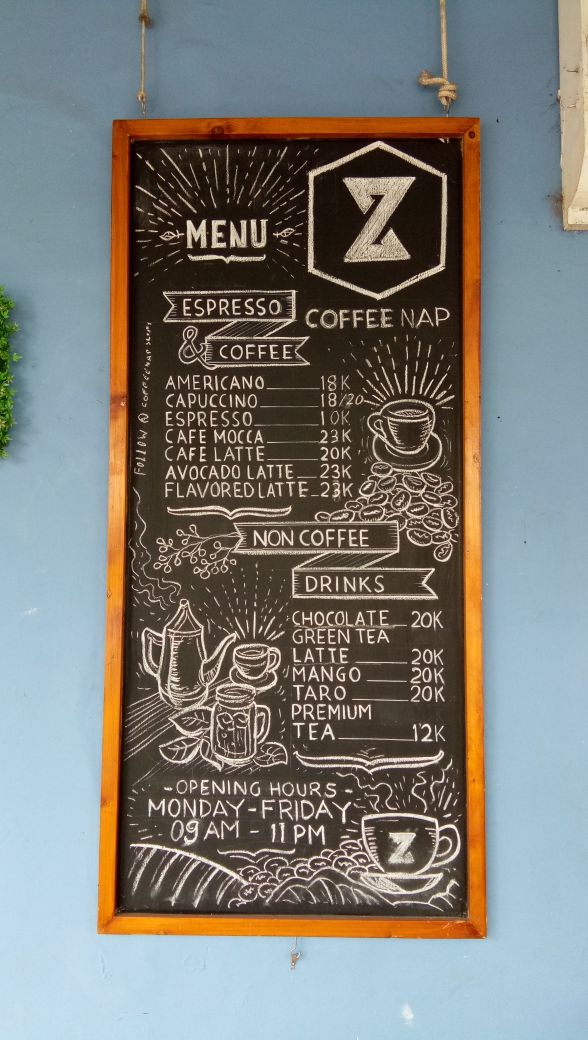 MENU
Z
COFFEE NAP
ESPRESSO
& COFFEE
AMERICANO 18K
CAPUCCINO 18/20
ESPRESSO 10K
CAFE MOCCA 23K
CAFE LATTE 20K
AVOCADO LATTE 23K
FLAVORED LATTE 23K
FOLLOW @
NON COFFEE
DRINKS
CHOCOLATE 20K
GREEN TEA
LATTE 20K
MANGO 20K
TARO 20K
PREMIUM
TEA 12K
-OPENING HOURS-
MONDAY-FRIDAY
09 AM - 11 PM
Z